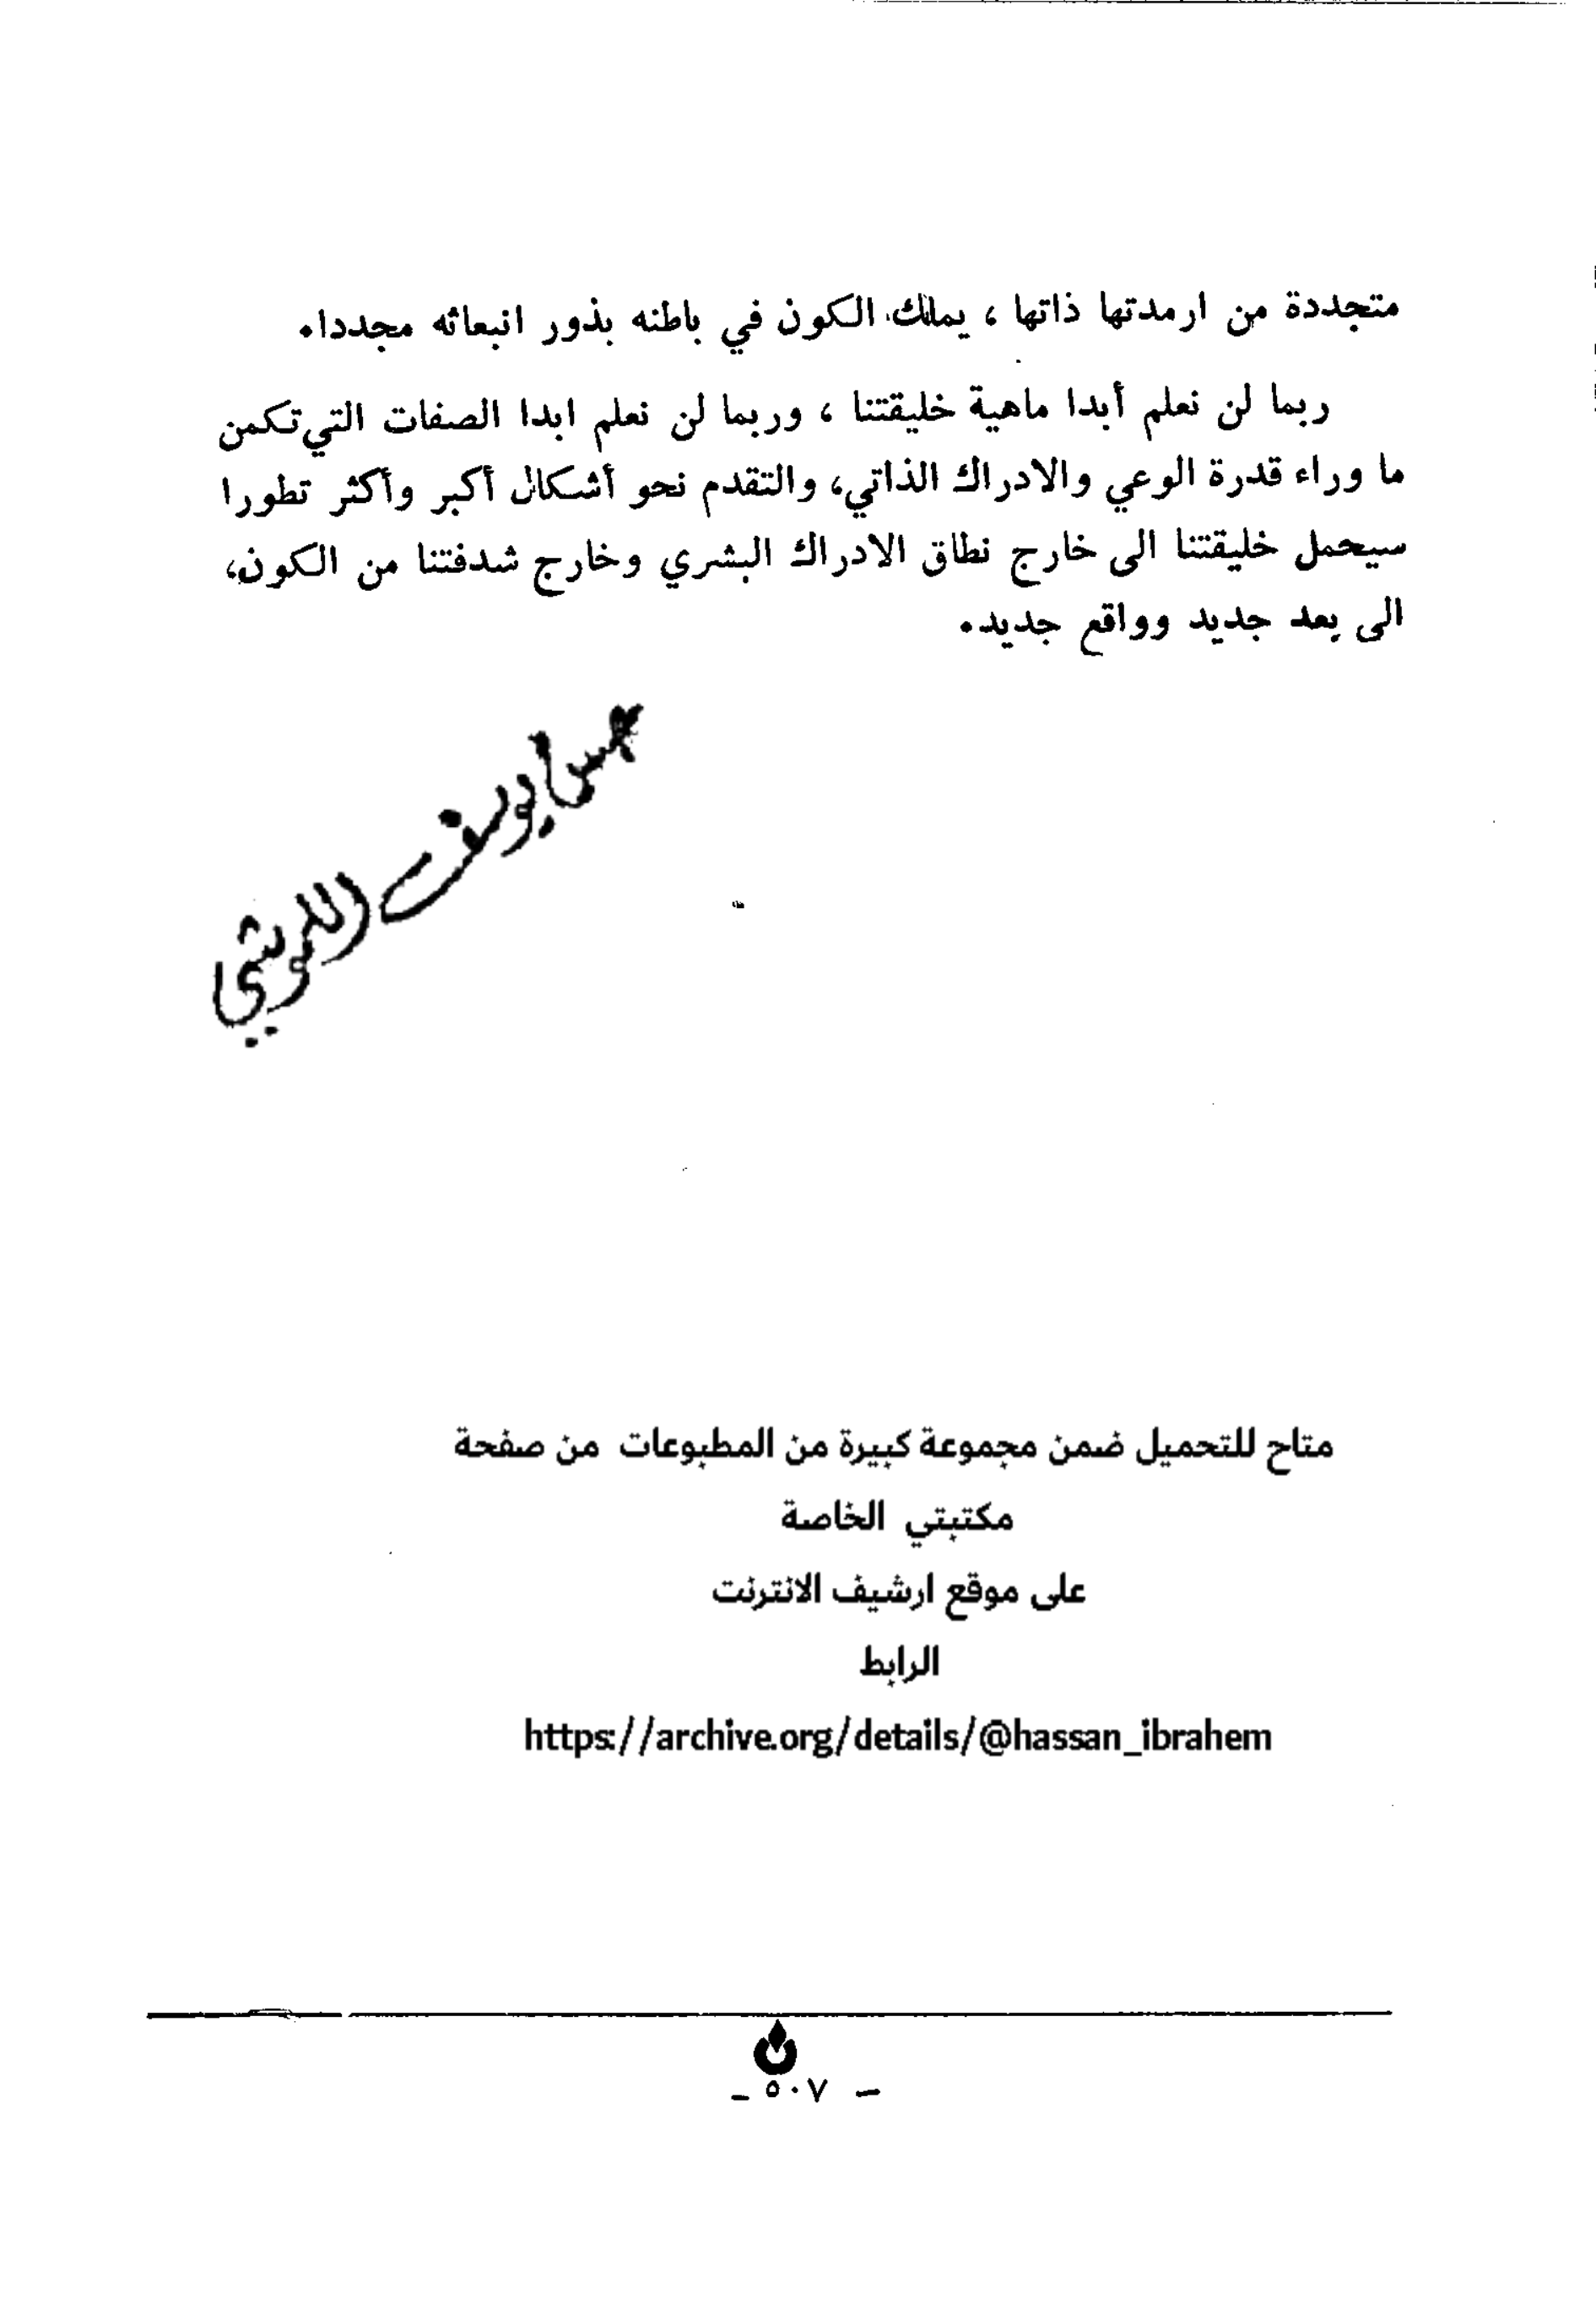 متجددة من ارمدتها ذاتها ، يملك الكون في باطنه بذور انبعاثه مجددا.
ربما لن نعلم أبدا ماهية خليقتنا ، وربما لن نعلم ابدا الصفات التي تكمن
ما وراء قدرة الوعي والادراك الذاتي، والتقدم نحو أشكال أكبر وأكثر تطورا
سيحمل خليقتنا الى خارج نطاق الادراك البشري وخارج شدفتنا من الكون،
الى بعد جديد وواقع جديد.
يوسف
متاح للتحميل ضمن مجموعة كبيرة من المطبوعات من صفحة
مكتبتي الخاصة
على موقع ارشيف الانترنت
الرابط
https://archive.org/details/@hassan_ibrahem
- ٥٠٧ -